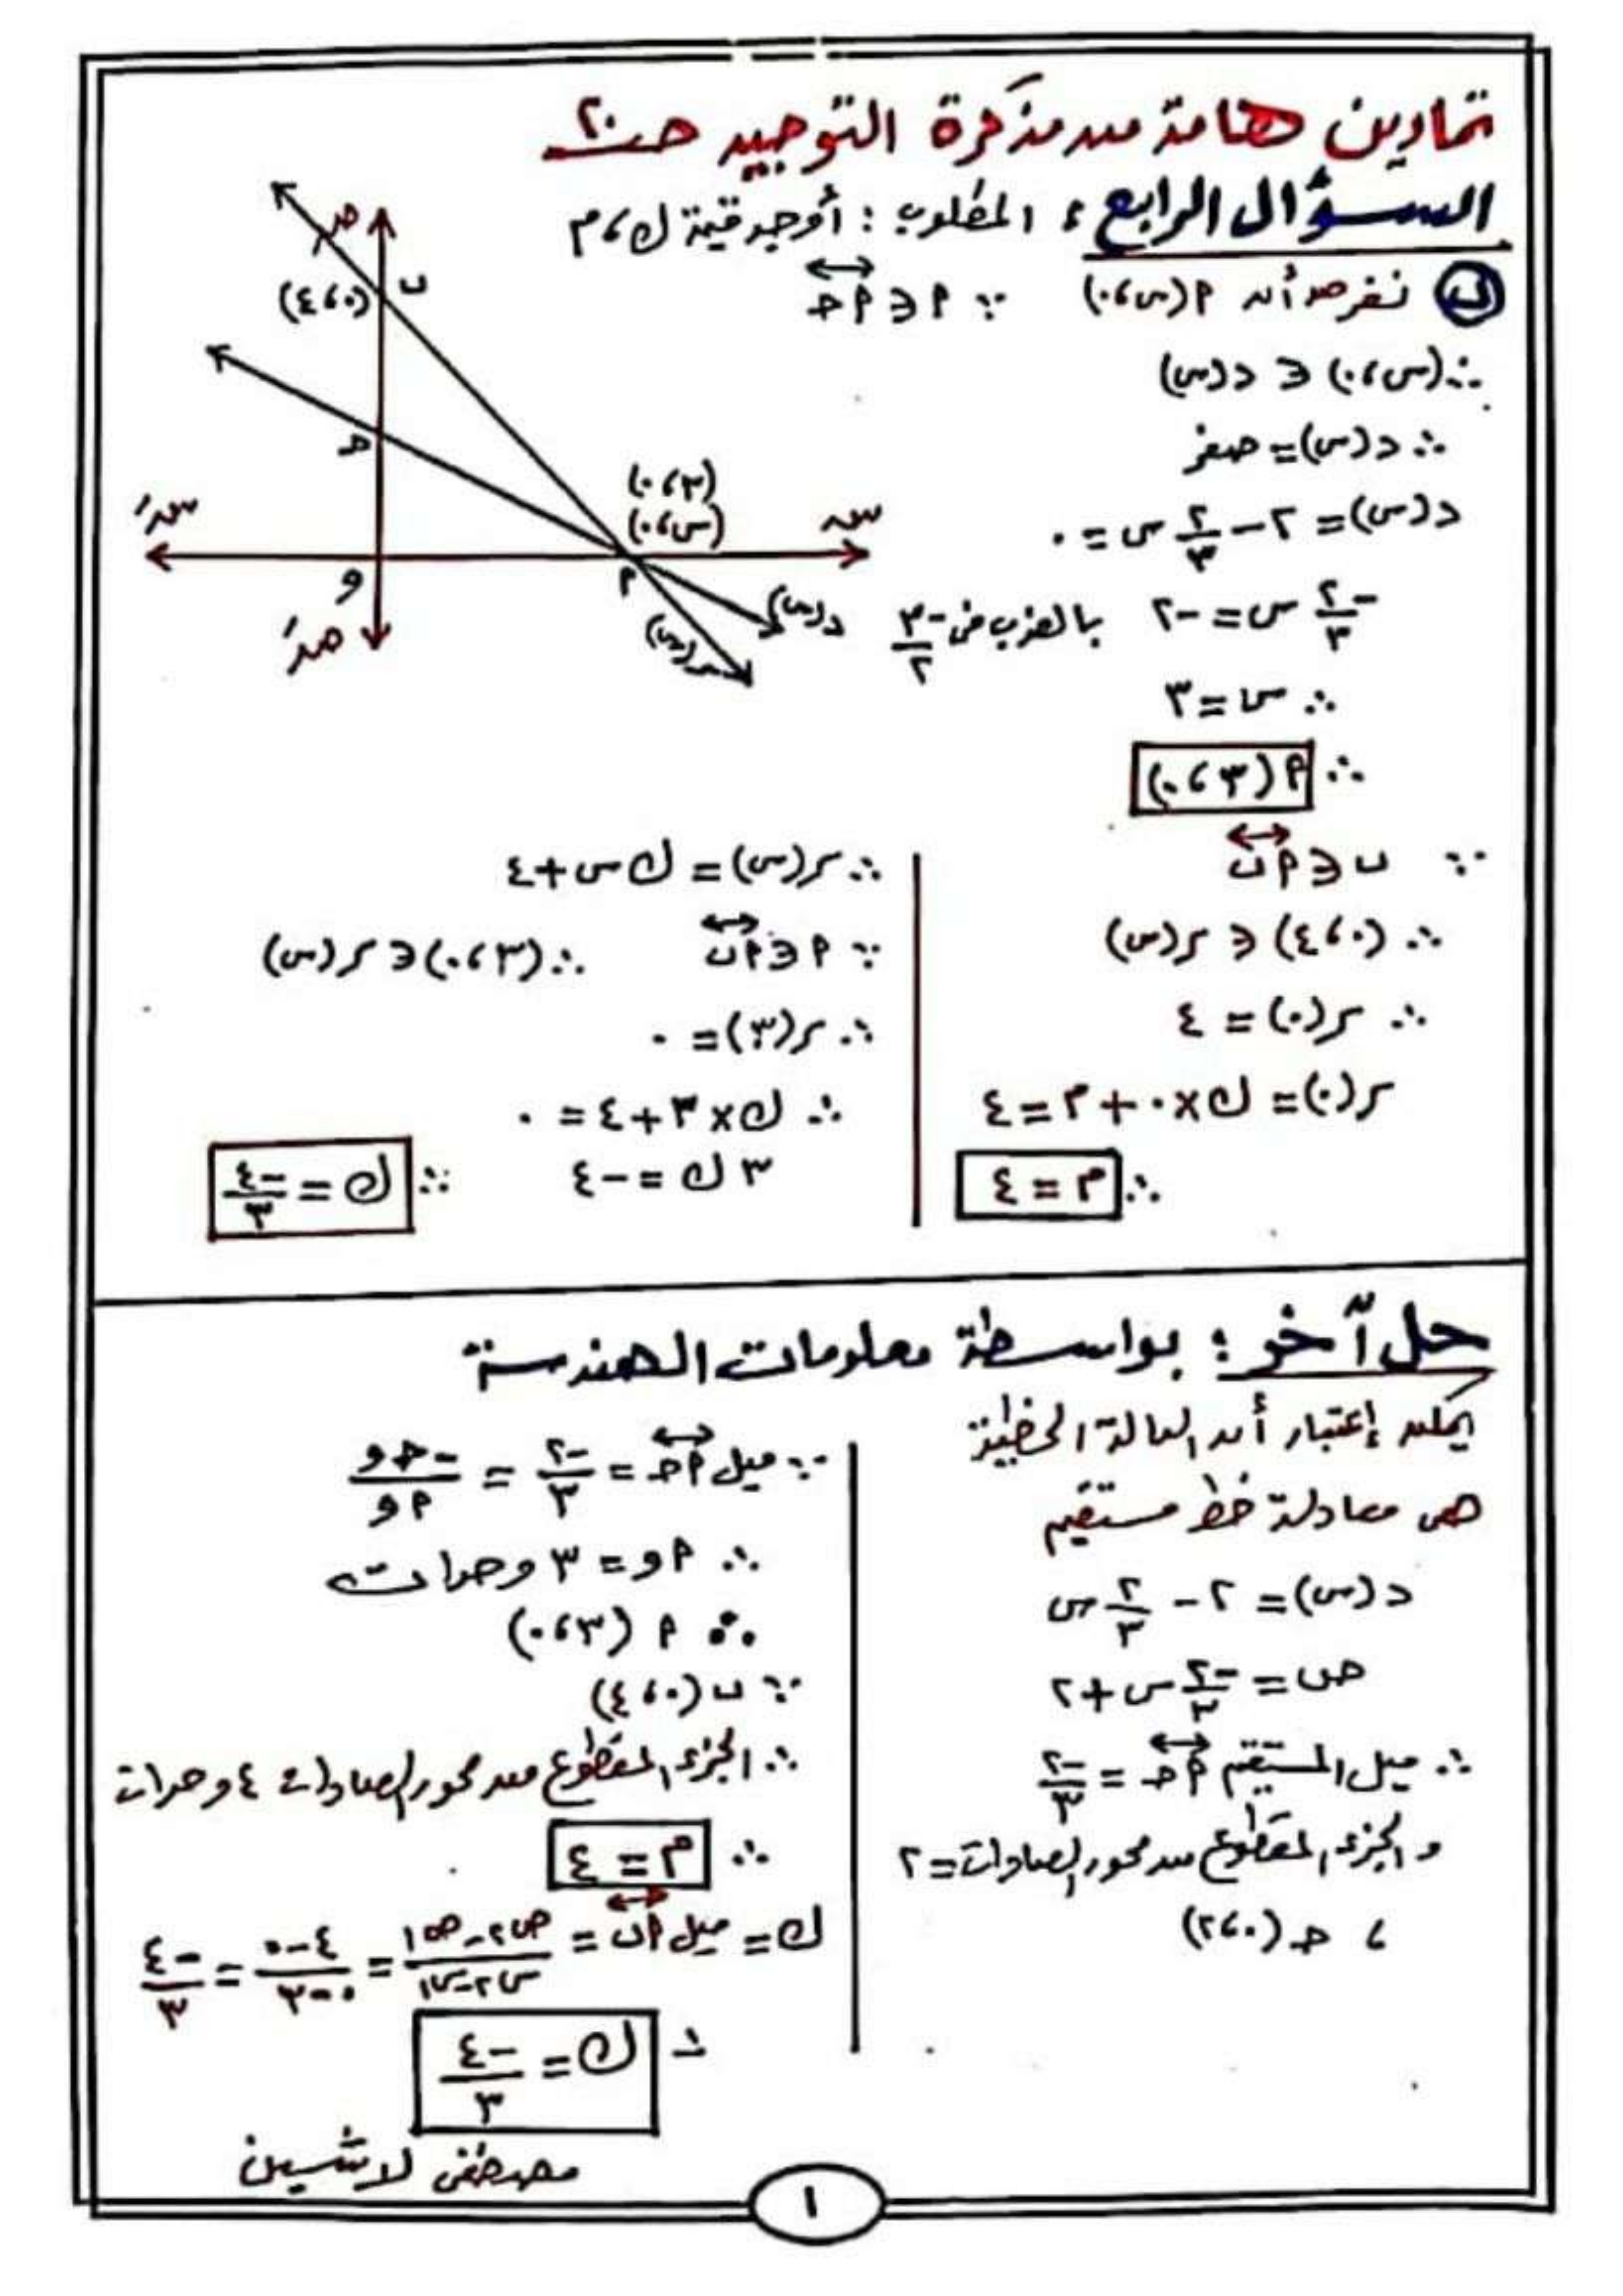 تمارين هامة من مذكرة التوجيه ص ٢٠
السؤال الرابع : المطلوب : أوجد قيمة ك ، م
ب نفرض أن م (س ، ٠) ∵ م ∈ م جـ
∴ (س ، ٠) ∈ د(س)
∴ د(س) = صفر
د(س) = ٢ - ٢/٣ س = ٠
-٢/٣ س = -٢ بالضرب في -٣/٢
∴ س = ٣
∴ م (٣ ، ٠)
صَ
ب
(٠ ، ٤)
جـ
(٣ ، ٠)
(س ، ٠)
سَ
س
و
م
د(س)
ر(س)
صَ
∵ ب ∈ م ب
∴ (٠ ، ٤) ∈ ر(س)
∴ ر(٠) = ٤
ر(٠) = ك × ٠ + م = ٤
∴ م = ٤
∴ ر(س) = ك س + ٤
∵ م ∈ م ب ∴ (٣ ، ٠) ∈ ر(س)
∴ ر(٣) = ٠
∴ ك × ٣ + ٤ = ٠
٣ ك = -٤ ∴ ك = -٤/٣
حل آخر : بواسطة معلومات الهندسة
يمكن إعتبار أن الدالة الخطية
هى معادلة خط مستقيم
د(س) = ٢ - ٢/٣ س
ص = -٢/٣ س + ٢
∴ ميل المستقيم م جـ = -٢/٣
و الجزء المقطوع من محور الصادات = ٢
، جـ (٠ ، ٢)
∵ ميل م جـ = -٢/٣ = -جـ و/م و
∴ م و = ٣ وحدات
∴ م (٣ ، ٠)
∵ ب (٠ ، ٤)
∴ الجزء المقطوع من محور الصادات ٤ وحدات
∴ م = ٤
ك = ميل م ب = ص٢ - ص١/س٢ - س١ = ٤ - ٠/٠ - ٣ = -٤/٣
∴ ك = -٤/٣
مصطفى لاشين
١